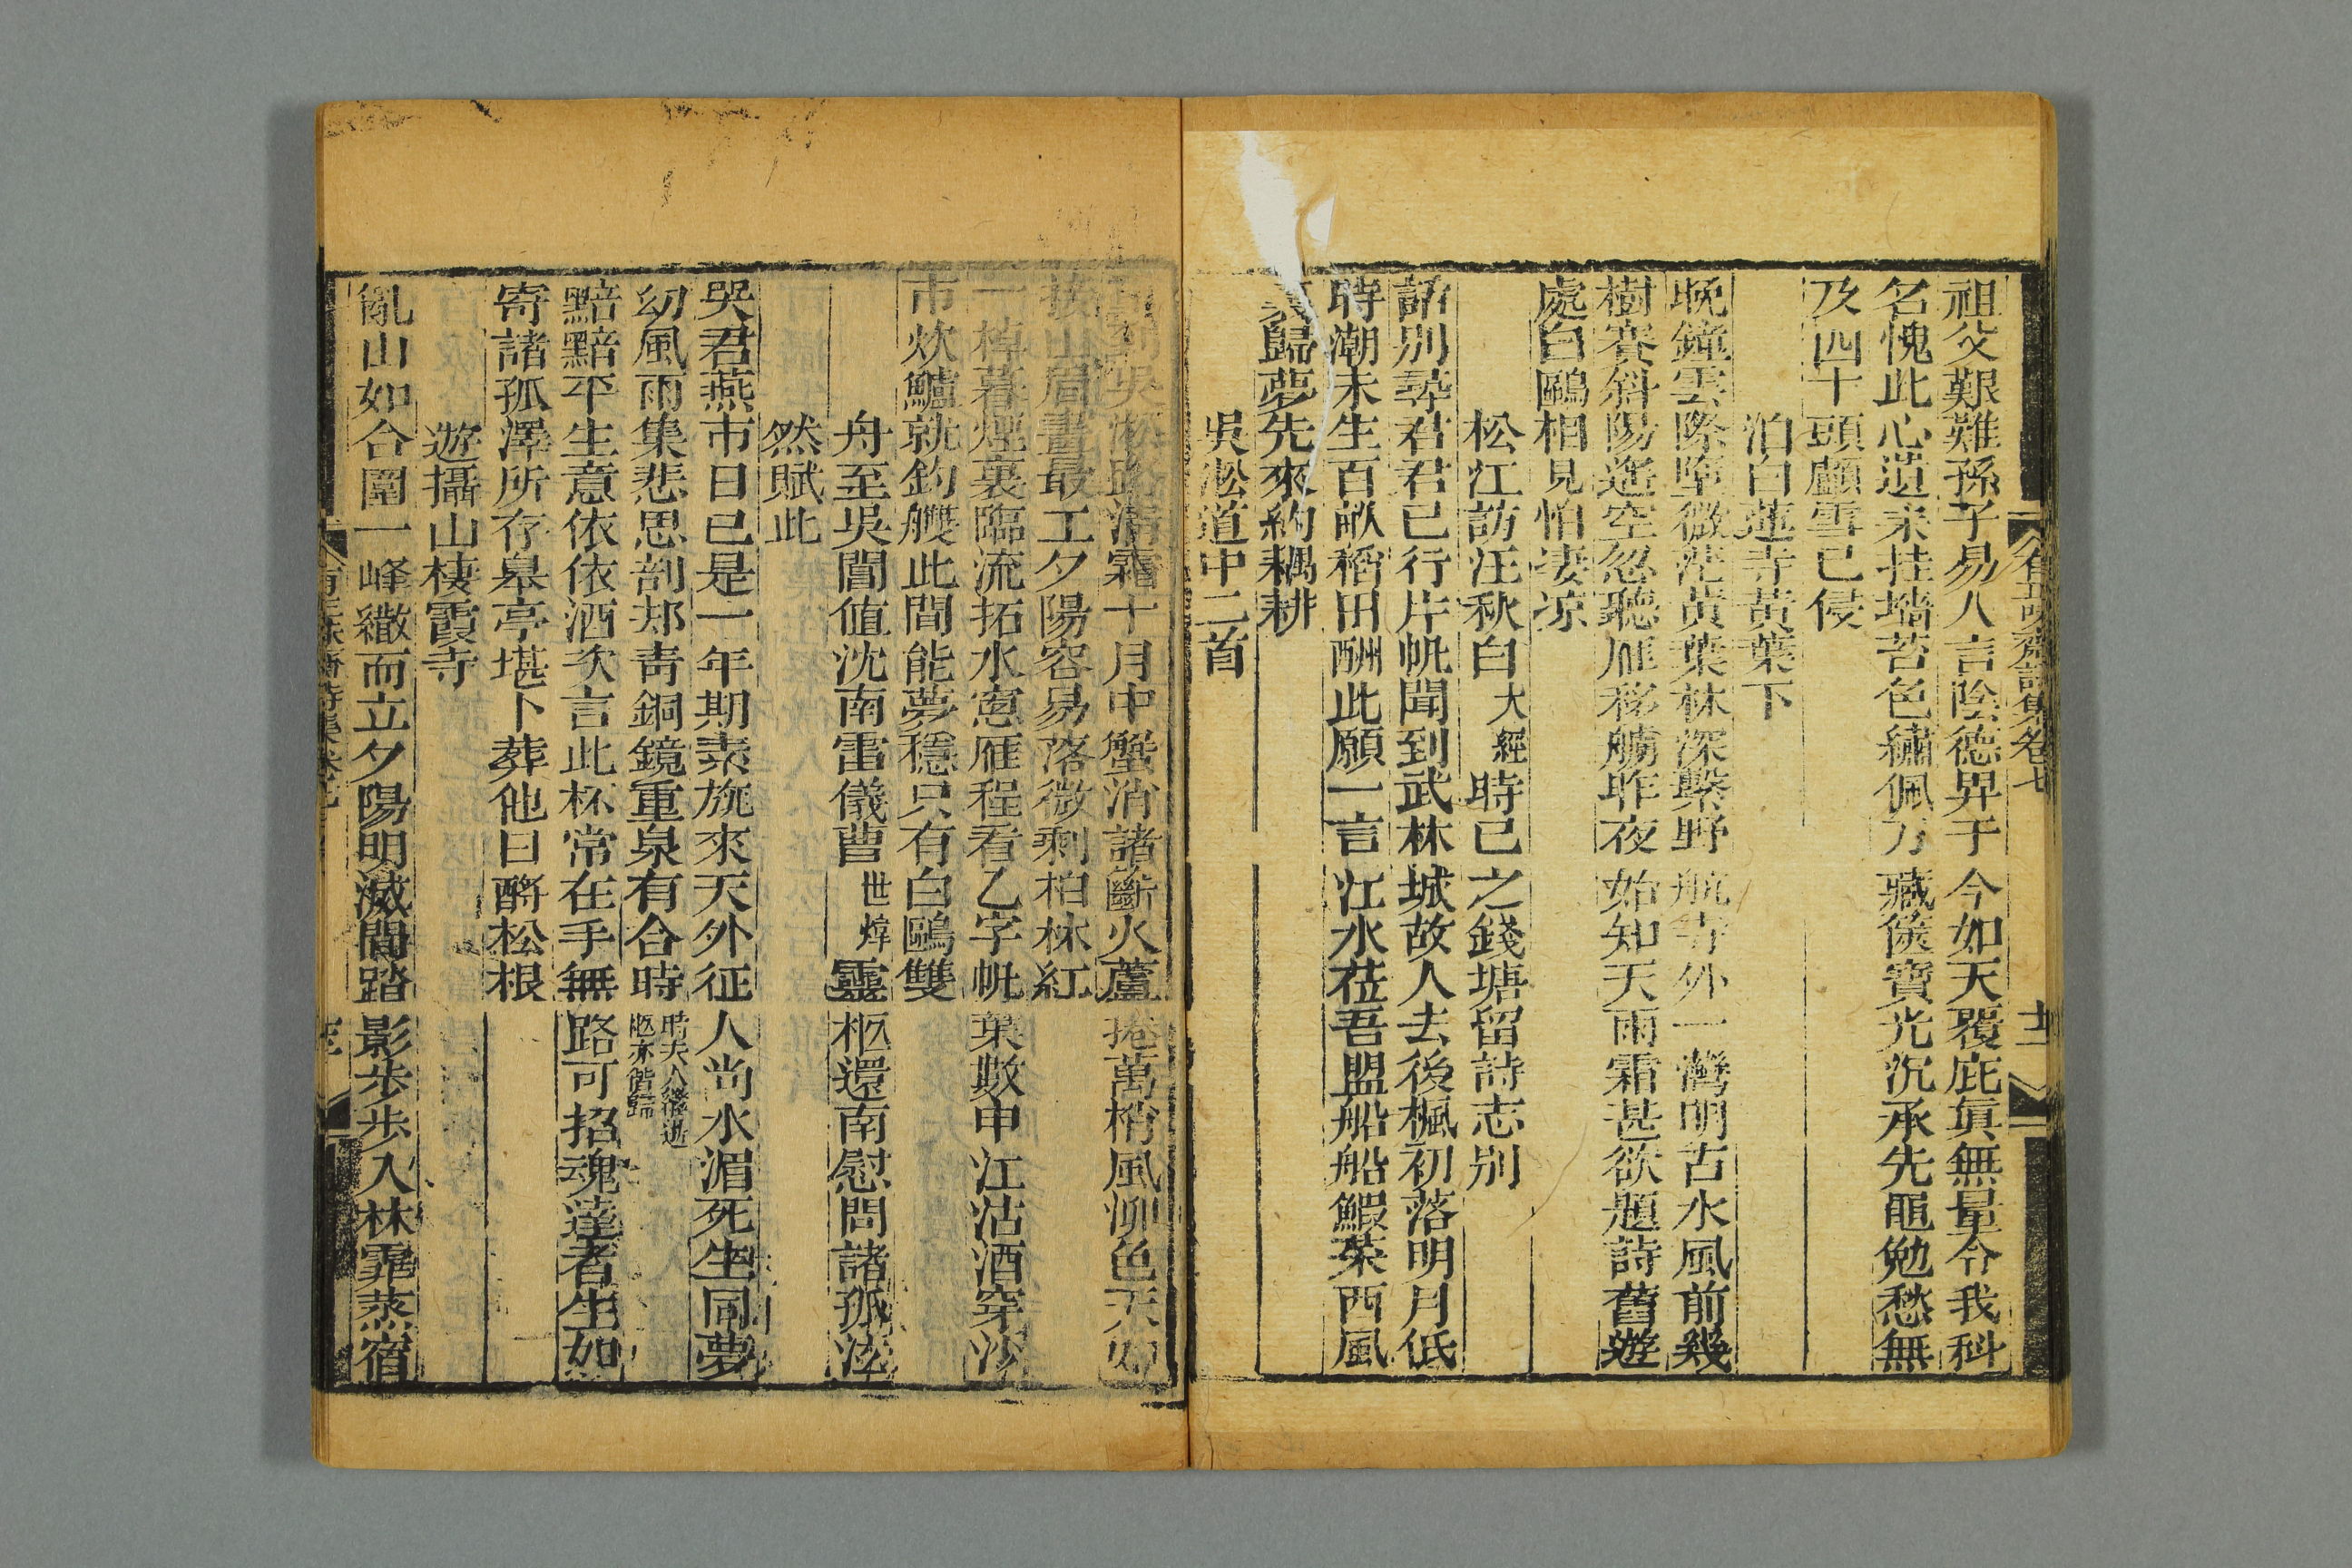 有正味齋詩集卷七
十二
祖父艱難孫子易人言陰德昇于今如天覆庇眞無量令我科
名愧此心遺耒挂墻苔色繡佩刀藏篋寶光沉承先黽勉愁無
及四十頭顱雪已侵
泊白蓮寺黃葉下
晚鐘雲際墮微茫黃葉林深繫野航寺外一灣明古水風前幾
樹賽斜陽遥空忽聽雁移艣昨夜始知天雨霜甚欲題詩舊遊
處白鷗相見怕淒凉
松江訪汪秋白大經時已之錢塘留詩志別
詣別尋君君已行片帆聞到武林城故人去後楓初落明月低
時潮未生百畝稻田酬此願一言江水莅吾盟船船鰕菜西風
裏歸夢先來約耦耕
吳淞道中二首
吳淞 霜十月中蟹消諸斷火蘆 萬梢風柳色天
山眉畫最工夕陽容易落微剩柏林紅
一棹暮煙裏臨流拓水窻雁程看乙字帆葉數申江沽酒穿沙
市炊鱸就釣艭此間能夢穩只有白鷗雙
舟至吳閶値沈南雷儀曹世煒靈柩還南慰問諸孤泫
然賦此
哭君燕市日已是一年期素旐來天外征人尚水湄死生同夢
幻風雨集悲思剖郄靑銅鏡重泉有合時時夫人繼逝柩亦偕歸
黯黯平生意依依洒次言此杯常在手無路可招魂達者生如
寄諸孤澤所存皋亭堪卜葬他日酹松根
遊攝山棲霞寺
亂山如合圍一峰繖而立夕陽明滅間踏影步步入林霏蒸宿
有正味齋詩集卷七